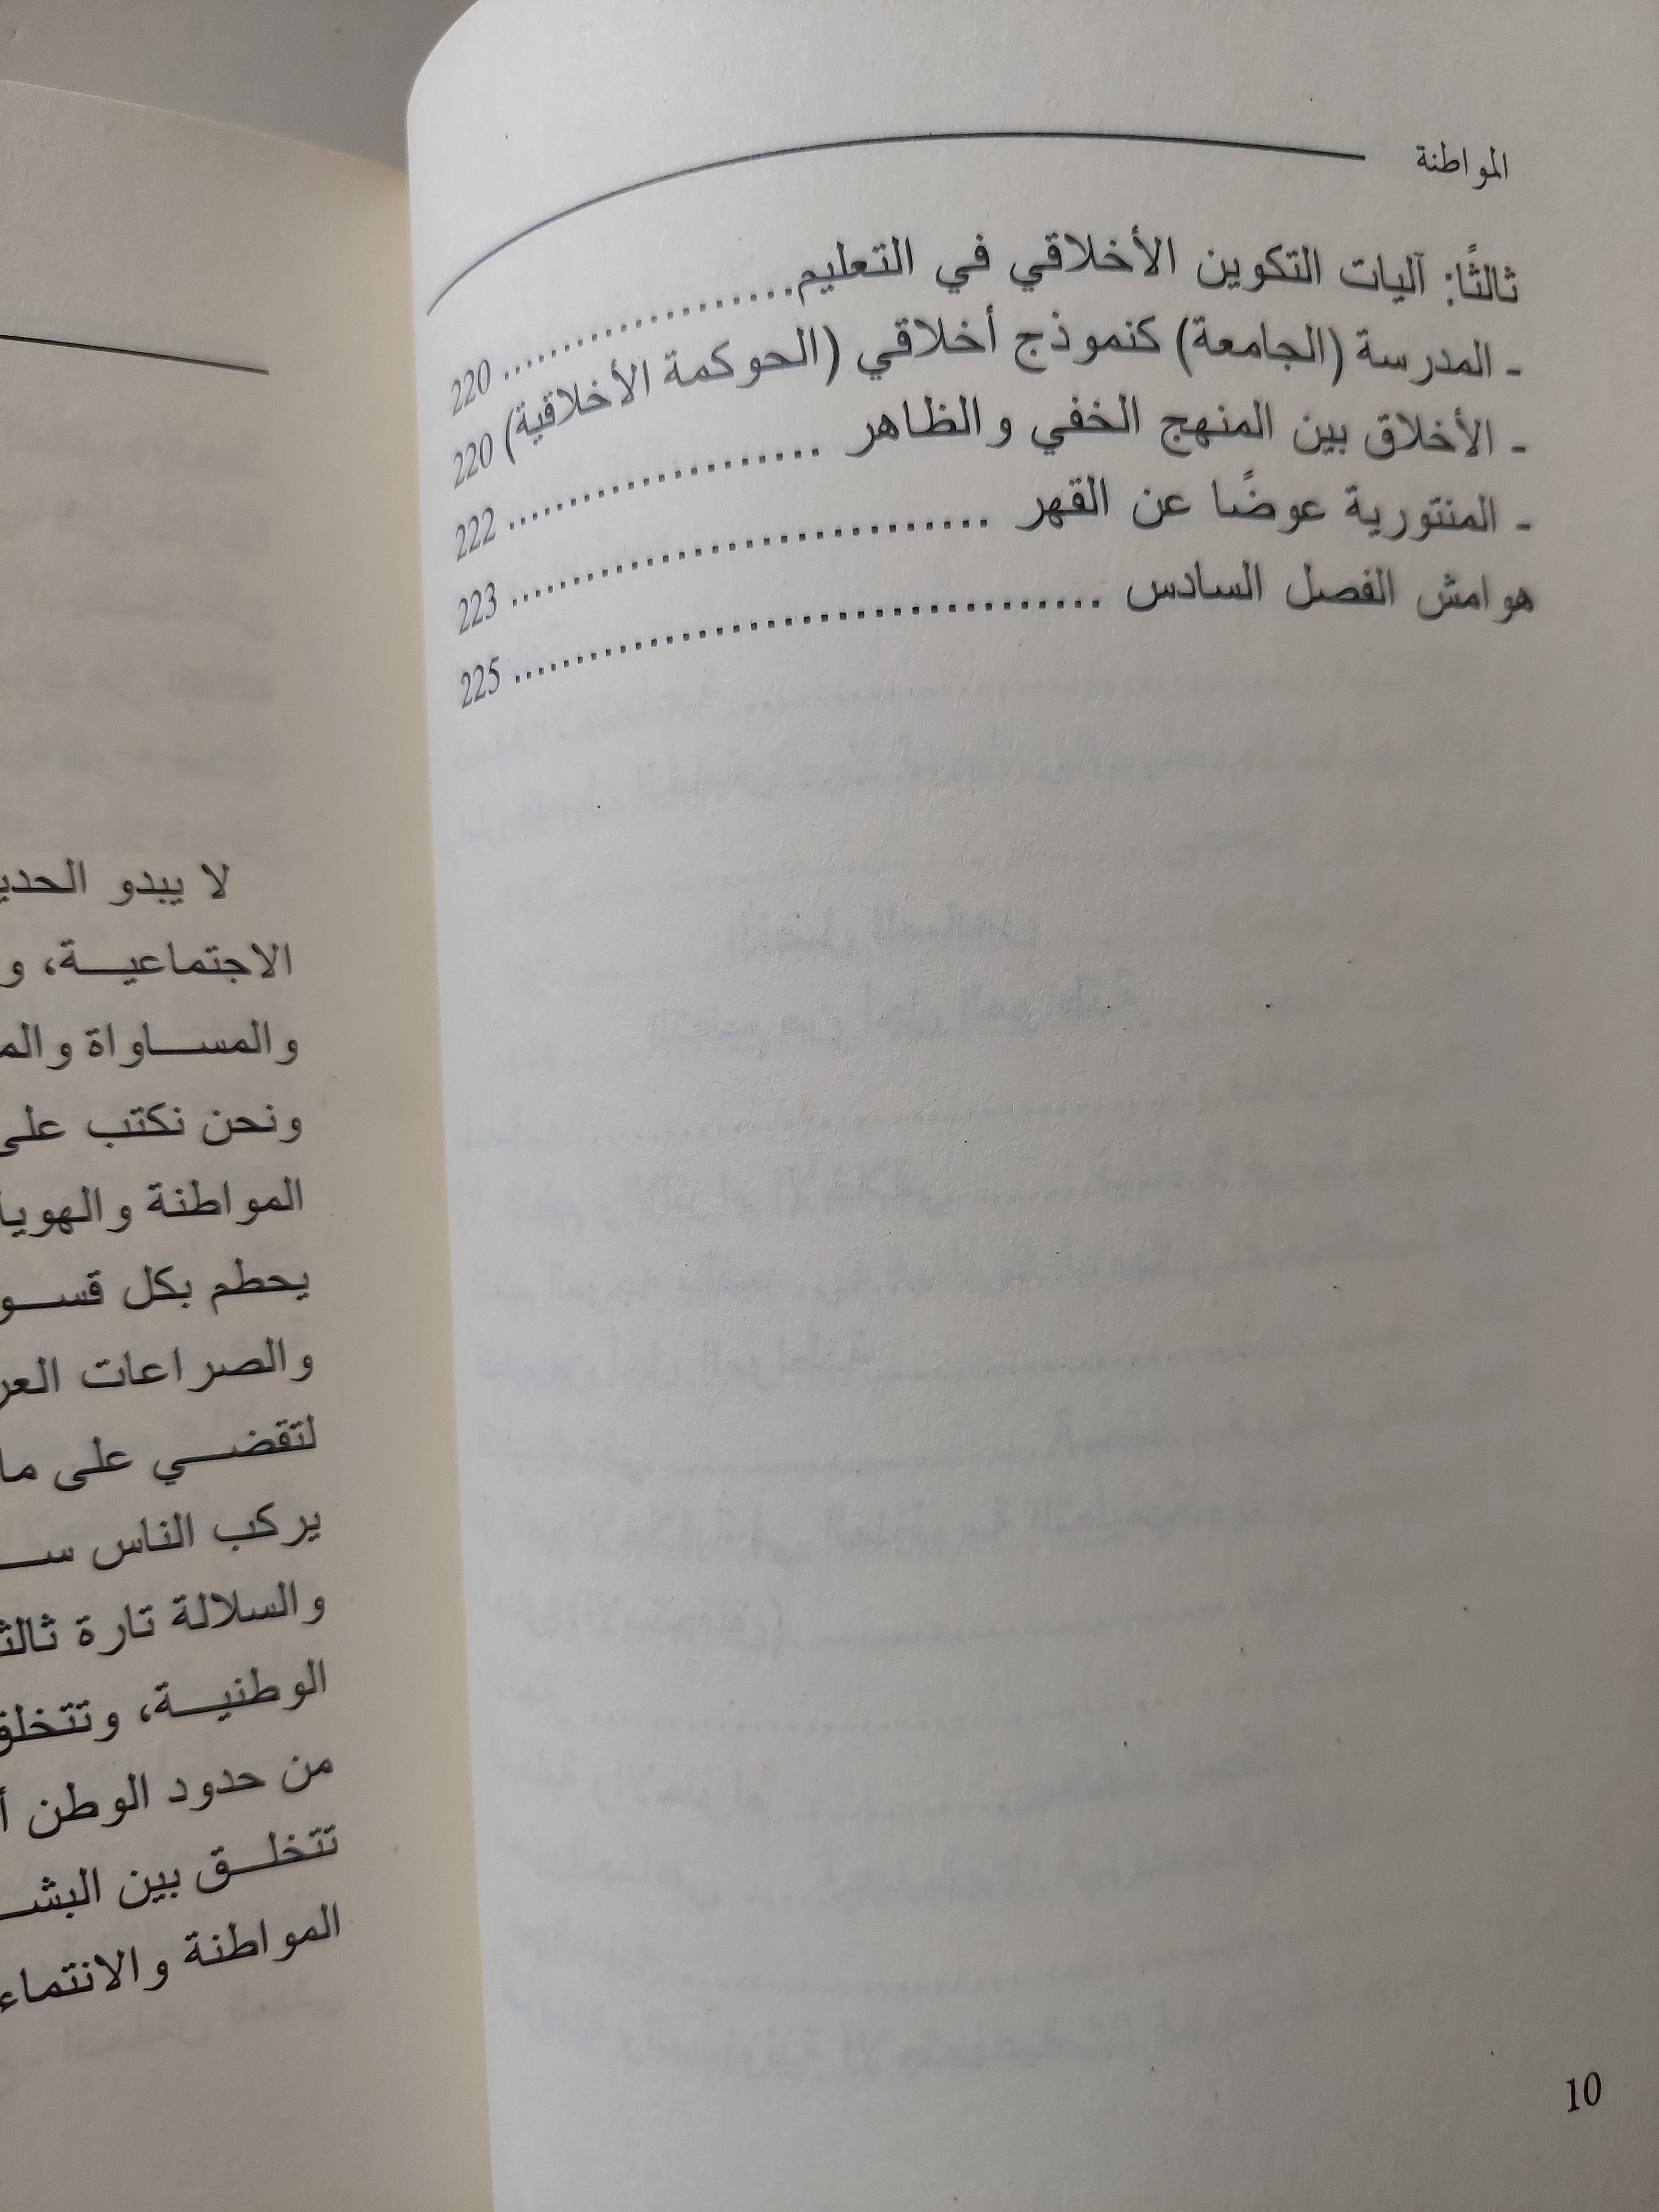 المواطنة
ثالثًا: آليات التكوين الأخلاقي في التعليم .................... 220
- المدرسة (الجامعة) كنموذج أخلاقي (الحوكمة الأخلاقية) 220
- الأخلاق بين المنهج الخفي والظاهر .................... 222
- المنتورية عوضًا عن القهر .................... 223
هوامش الفصل السادس .................... 225
10
لا يبدو
الاجتماعيـــة، و
والمســـاواة
ونحن نكتب على
المواطنة
يحطم بكل
والصراعات
لتقضـــي على ما
يركب الناس
والسلالة تارة
الوطنيـــة،
من حدود الوطن
تتخلـــق بين
المواطنة والانتماء